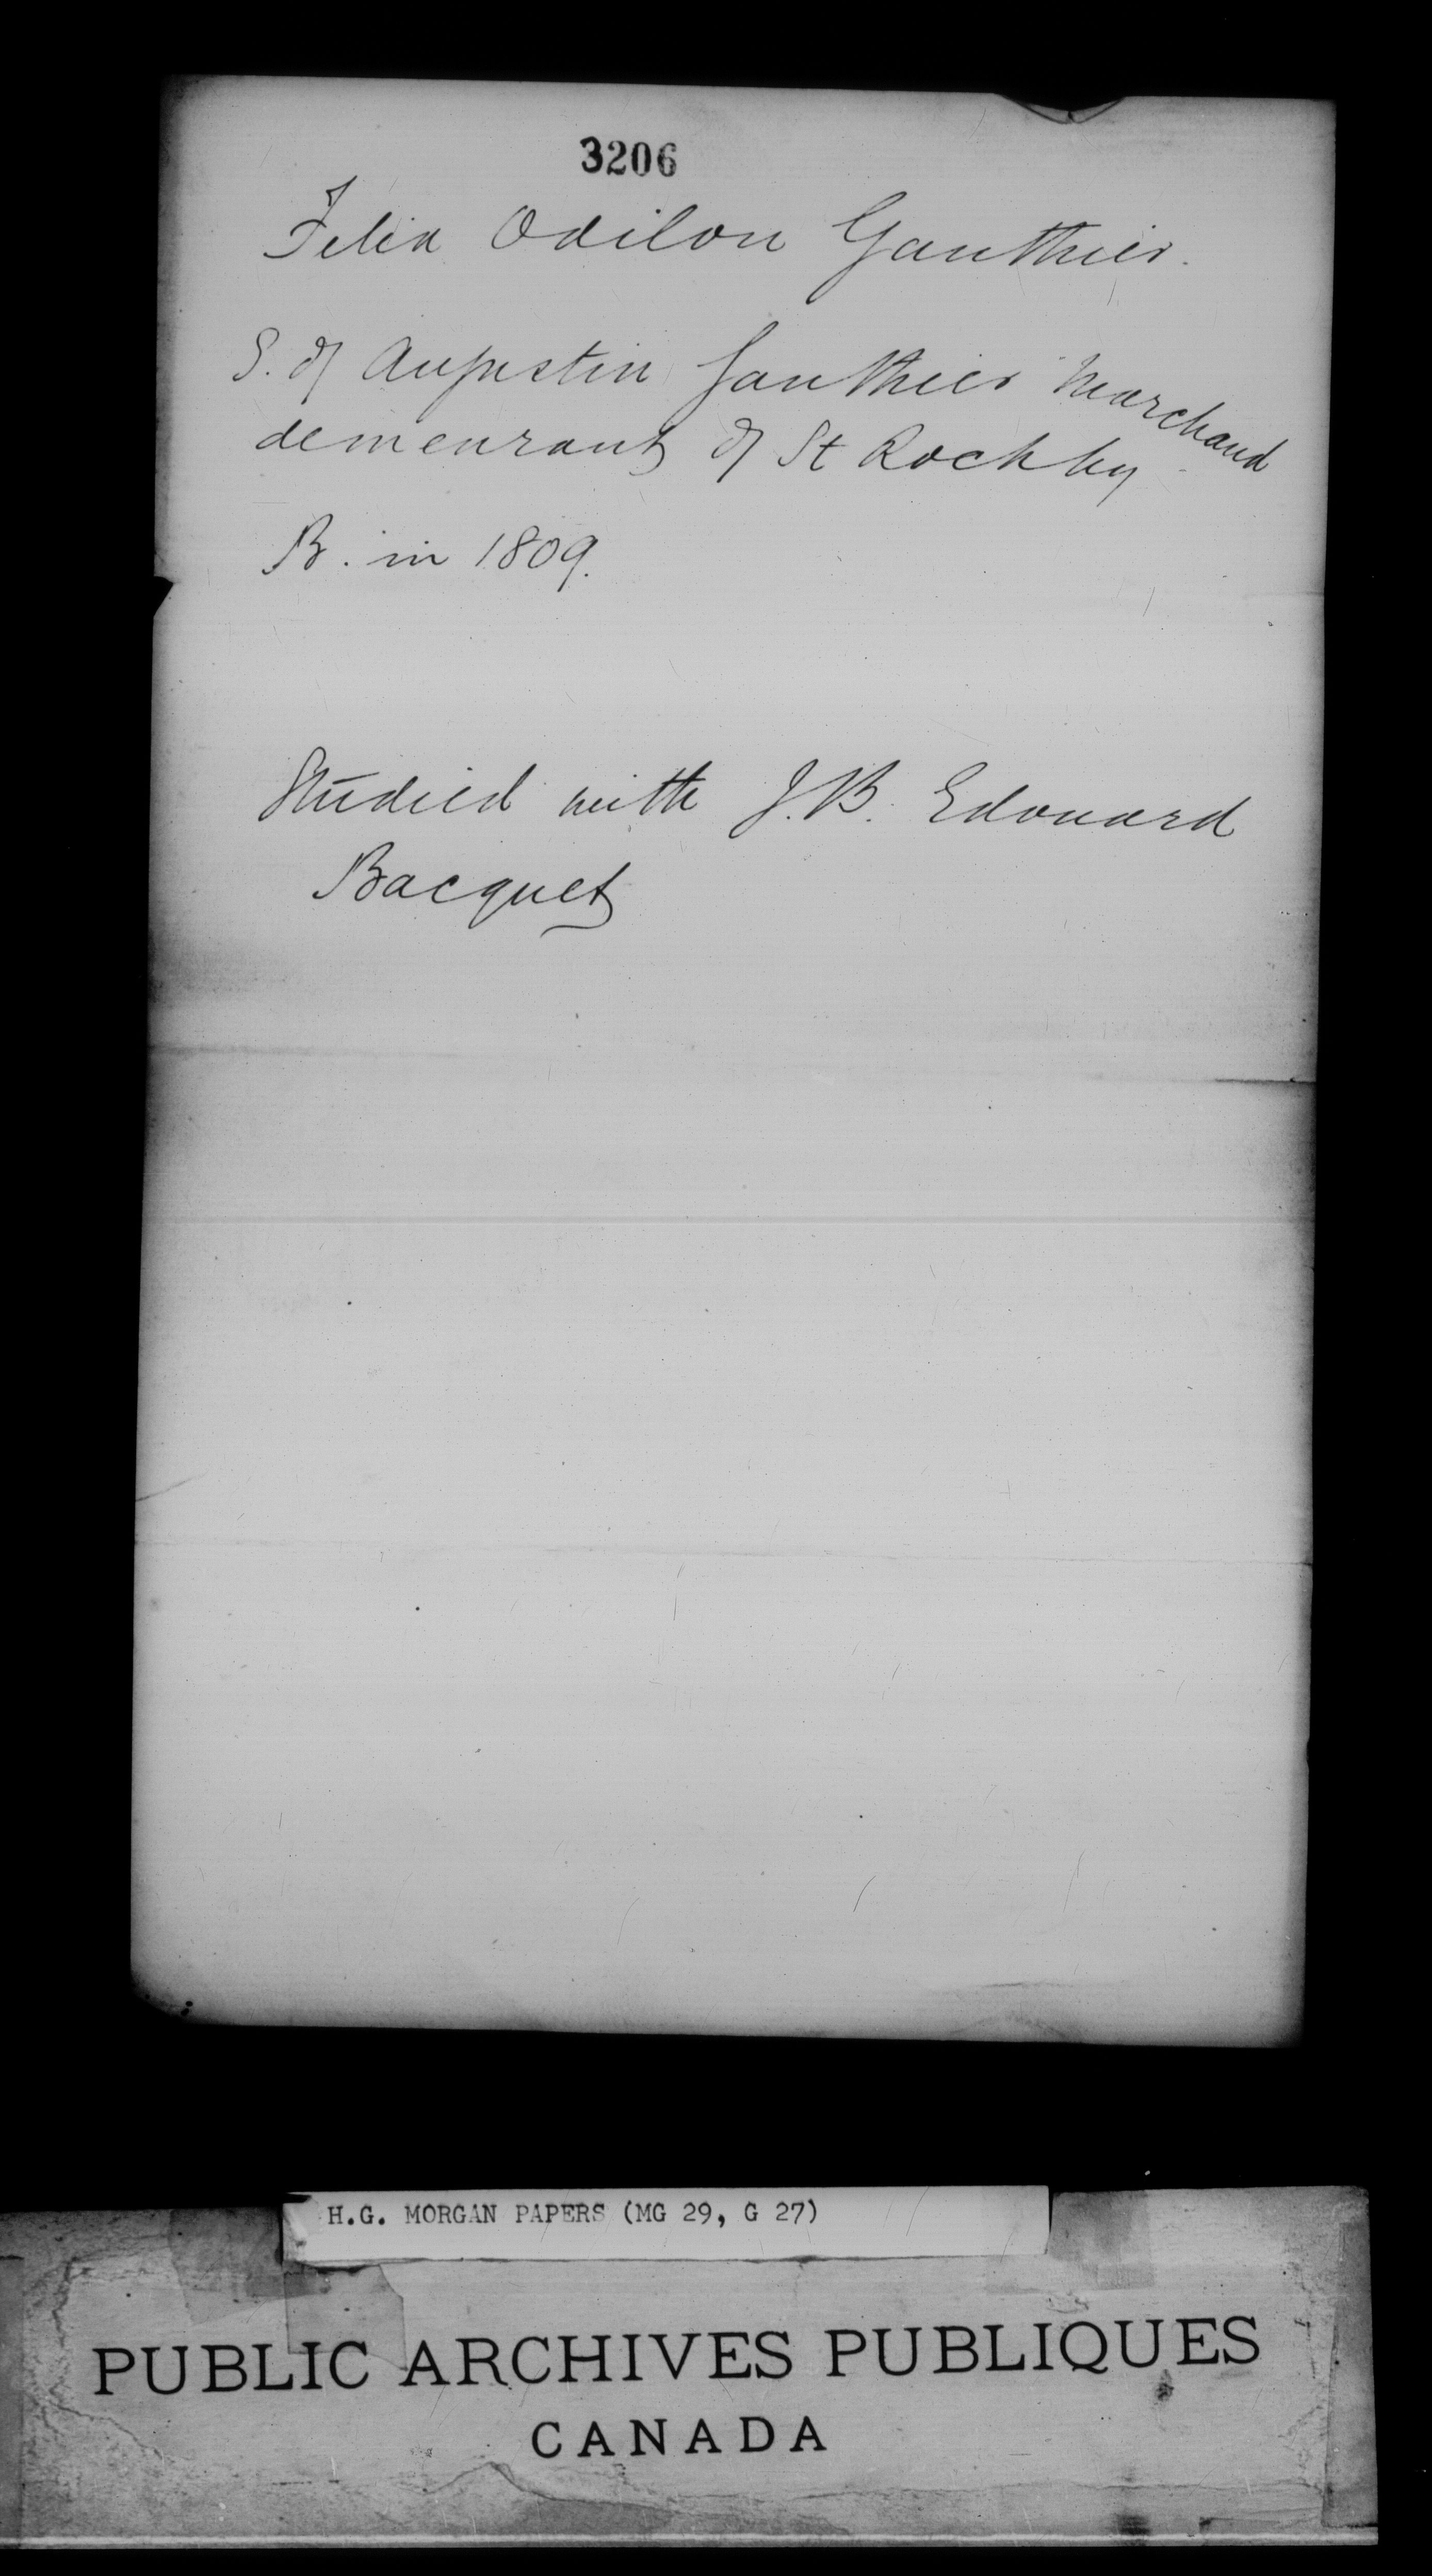 3206
Felix Odilon Gauthier.
S. of Augustin Gauthier Marchand
demeurant of St Roch by
B. in 1809.
Studied with J.B. Edouard
Bacquet
H.G. MORGAN PAPERS (MG 29, G 27)
PUBLIC ARCHIVES PUBLIQUES
CANADA